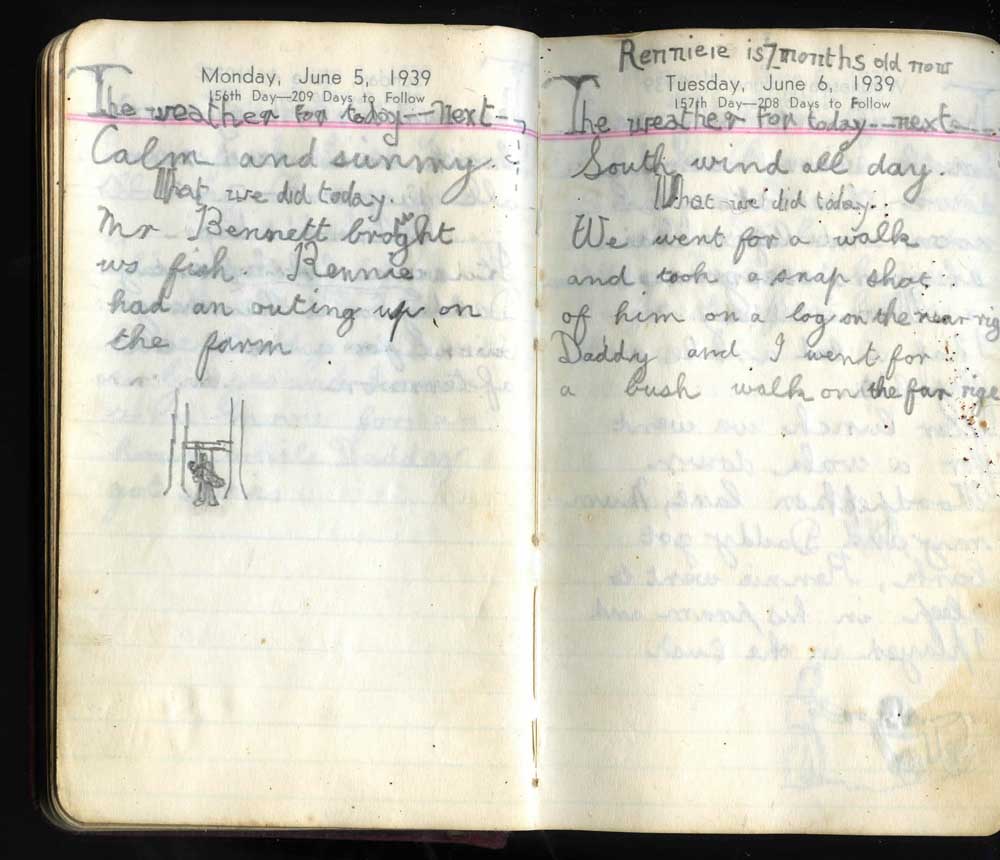 Monday, June 5, 1939
156th Day—209 Days to Follow
The weather for today---Next--
Calm and sunny.
What we did today.
Mr Bennett broght
us fish. Rennie
had an outing up on
the farm
Rennieie is 7 months old now
Tuesday, June 6, 1939
157th Day—208 Days to Follow
The weather for today---next---
South wind all day.
What we did today.
We went for a walk
and took a snap shot.
of him on a log on the near rig
Daddy and I went for
a bush walk on the far rige